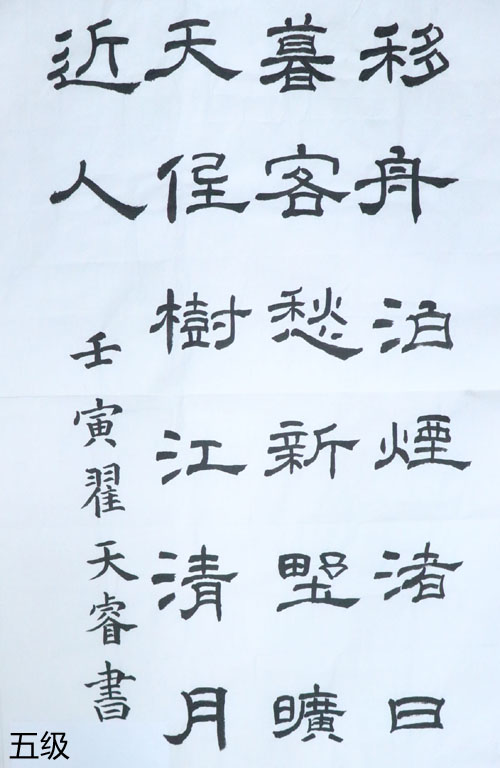 移舟泊煙渚日
暮客愁新野曠
天低樹江清月
近人
壬寅翟天睿書
五级